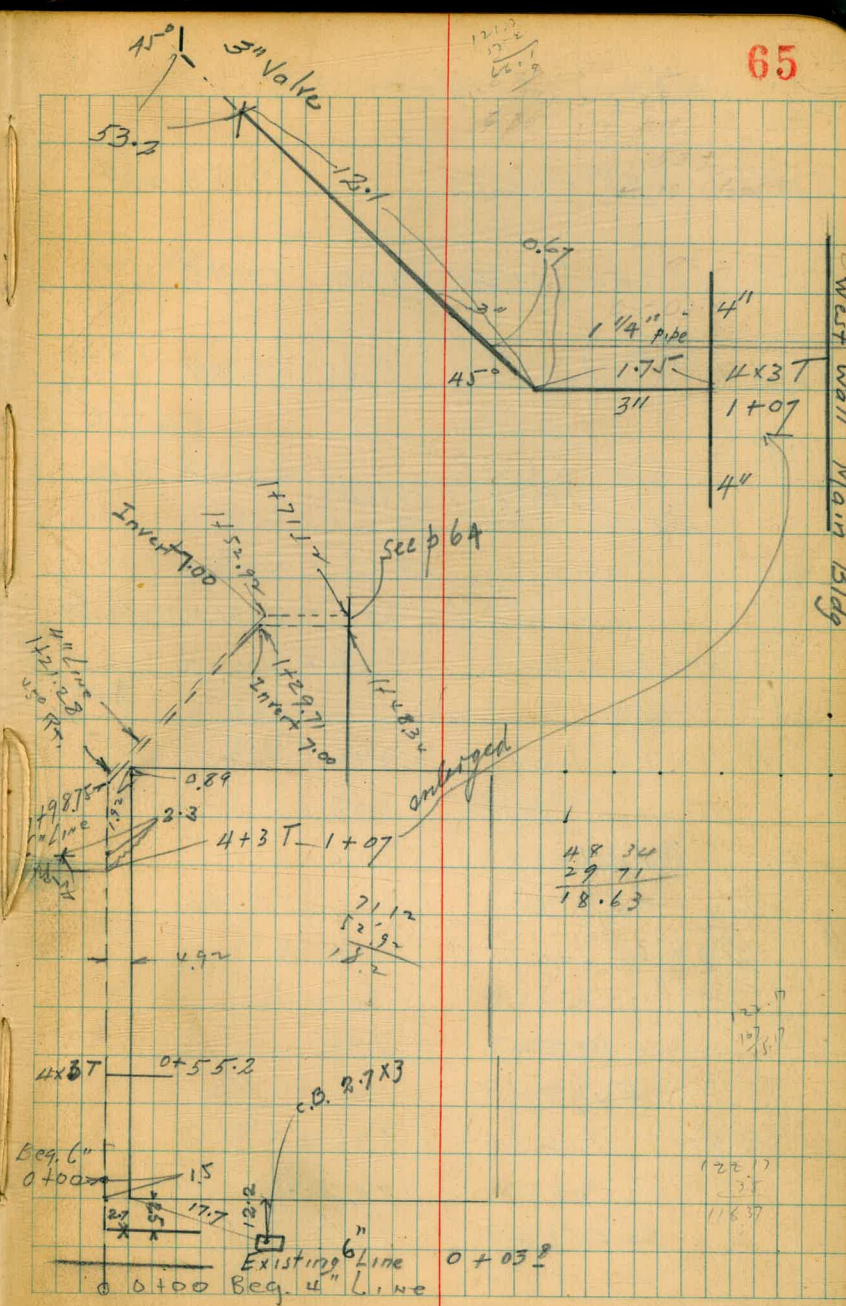 65
45°
3" Valve
53.2
12.1
0.67
3"
1 1/4" pipe
4"
45°
1.75
4x3 T
3"
1+07
4"
West Wall Main Bldg
Invert 7.00
1+52.92
1+71.12
See p 64
1+29.71
Invert 7.00
1+48.34
4" Line
1+21.28
45° Rt.
0.89
enlarged
1+98.75
2.3
4+3 T 1+07
48 34
29 71
18.63
71.12
52.92
18.2
4.92
4x3 T
0+55.2
C.B. 2.7x3
Beg. 6"
0+00
1.5
2.7
17.7
12.2
122 17
Existing 6" Line 0+03
0+00 Beg. 4" Line